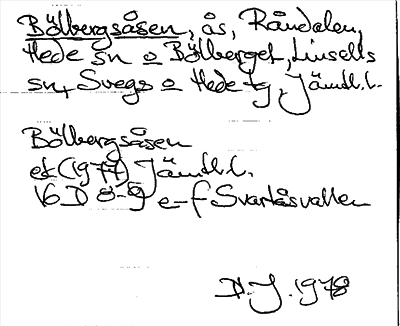 Bölbergsåsen, ås, Råndalen,
Hede sn o Bölberget, Linsells
sn, Svegs o Hede tg, Jämtl. l.
Bölbergsåsen
ek (1977) Jämtl. l.
16 D 8-9 e-f Svartåsvallen
D. J. 1978